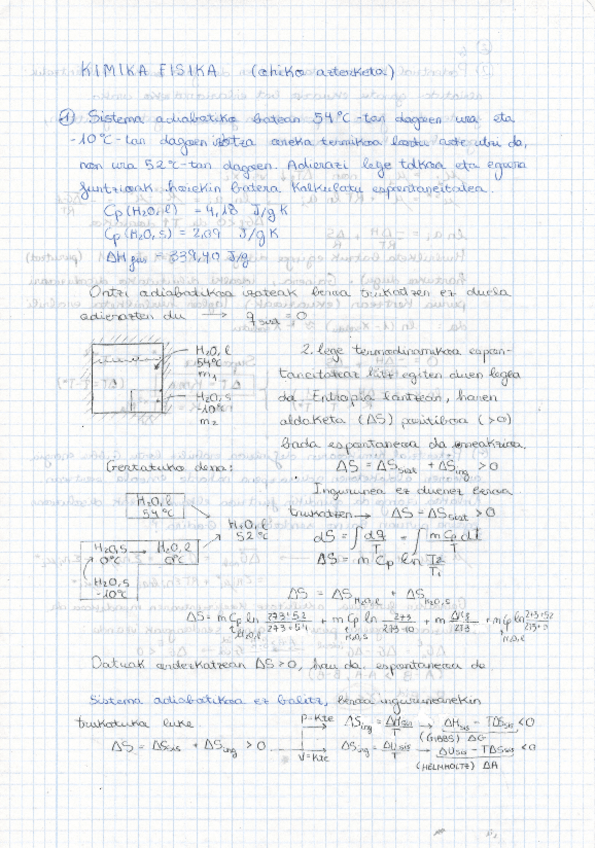 KIMIKA FISIKA (ohiko azterketa)
1 Sistema adiabatiko batean 54ºC-tan dagoen ura eta
-10ºC-tan dagoen izotza oreka termikoa lortu arte utzi da,
non ura 52ºC-tan dagoen. Adierazi lege totkoa eta egoera
funtzioak horiekin batera. Kalkulatu espontaneitatea.
Cp (H2O, l) = 4,18 J/gK
Cp (H2O, s) = 2,09 J/gK
ΔH fus = 339,40 J/g
Ontzi adiabatikoa izateak beroa trukatzen ez duela
adierazten du → q sist = 0
H2O, l
54ºC
m1
H2O, s
-10ºC
m2
2. lege termodinamikoa espon-
taneitateaz hitz egiten duen legea
da. Entropia lantzean, honen
aldaketa (ΔS) positiboa (>0)
bada espontaneoa da erreakzioa.
Gertatuko dena:
ΔS = ΔS sist + ΔS ing > 0
Ingurunea ez duenez beroa
trukatzen → ΔS = ΔS sist > 0
H2O, l
54ºC
H2O, l
52ºC
H2O, s → H2O, l
0ºC 0ºC
H2O, s
-10ºC
dS = ∫ dq/T = ∫ m Cp dt/T
ΔS = m Cp ln T2/T1
ΔS = ΔS H2O, l + ΔS H2O, s
ΔS = m Cp ln 273+52/273+54 + m Cp ln 273/273-10 + m ΔHf/273 + m Cp ln 273+52/273+0
H2O, l H2O, s H2O, l
Datuak ordezkatzean ΔS > 0, hau da espontaneoa da
Sistema adiabatikoa ez balitz, beroa ingurunearekin
trukatuko luke
P = kte ΔS ing = ΔH sis/T → ΔH sis - TΔS sis < 0
(GIBBS) ΔG
ΔS = ΔS sis + ΔS ing > 0
V = kte ΔS ing = ΔU sis/T → ΔU sis - TΔS sis < 0
(HELMHOLTZ) ΔA